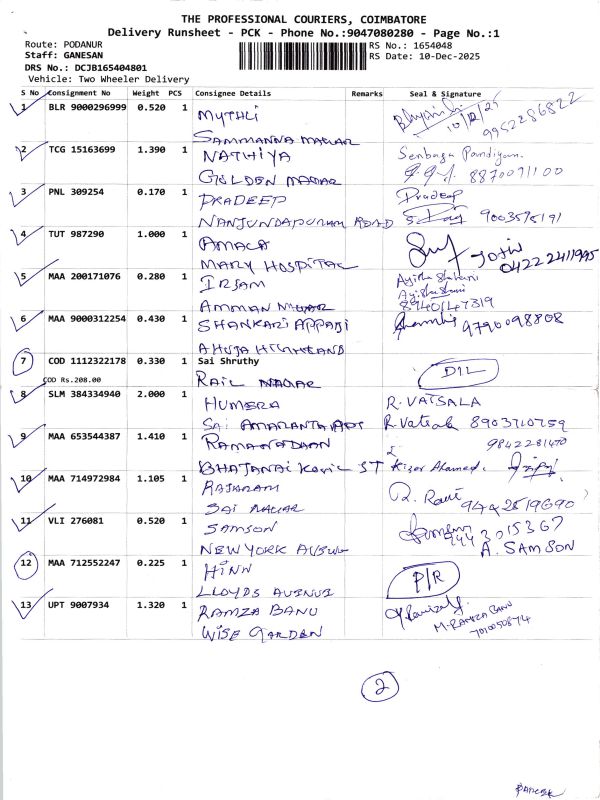 THE PROFESSIONAL COURIERS, COIMBATORE
Delivery Runsheet - PCK - Phone No.:9047080280 - Page No.:1
Route: PODANUR RS No.: 1654048
Staff: GANESAN RS Date: 10-Dec-2025
DRS No.: DCJB165404801
Vehicle: Two Wheeler Delivery
S No Consignment No Weight PCS Consignee Details Remarks Seal & Signature
1 BLR 9000296999 0.520 1 MYTHLI 10/12/25 9952286822
SAMMANNA NAGAR
2 TCG 15163699 1.390 1 NATHIYA Senbaga Pandiyan.
GOLDEN NAGAR 8870091100
3 PNL 309254 0.170 1 PRADEEP Pradeep
NANJUNDAPURAM ROAD S. Raj 9003575191
4 TUT 987290 1.000 1 AMALA
MARY HOSPITAL 04222411995
5 MAA 200171076 0.280 1 IRSAM Ayisha
AMMAN NAGAR 8940147319
6 MAA 9000312254 0.430 1 SHANKARI APPADI 9790098808
AHUJA HIGHLAND
7 COD 1112322178 0.330 1 Sai Shruthy D/L
COD Rs.208.00 RAIL NAGAR
8 SLM 384334940 2.000 1 HUMERA R. VATSALA
SAI AMARANTA APTS R. Vatsala 8903710759
9 MAA 653544387 1.410 1 RAMANADAAN 9842281470
BHAJANAI KOVIL ST Kizar Ahamed.
10 MAA 714972984 1.105 1 RAJARAM R. Ravi
SAI NAGAR 9442519690
11 VLI 276081 0.520 1 SAMSON 9443015367
NEWYORK AVENU A. SAMSON
12 MAA 712552247 0.225 1 HINN P/R
LLOYDS AVENUE
13 UPT 9007934 1.320 1 RAMZA BANU M. RAMZA BANU
WISE GARDEN 7010050874
2